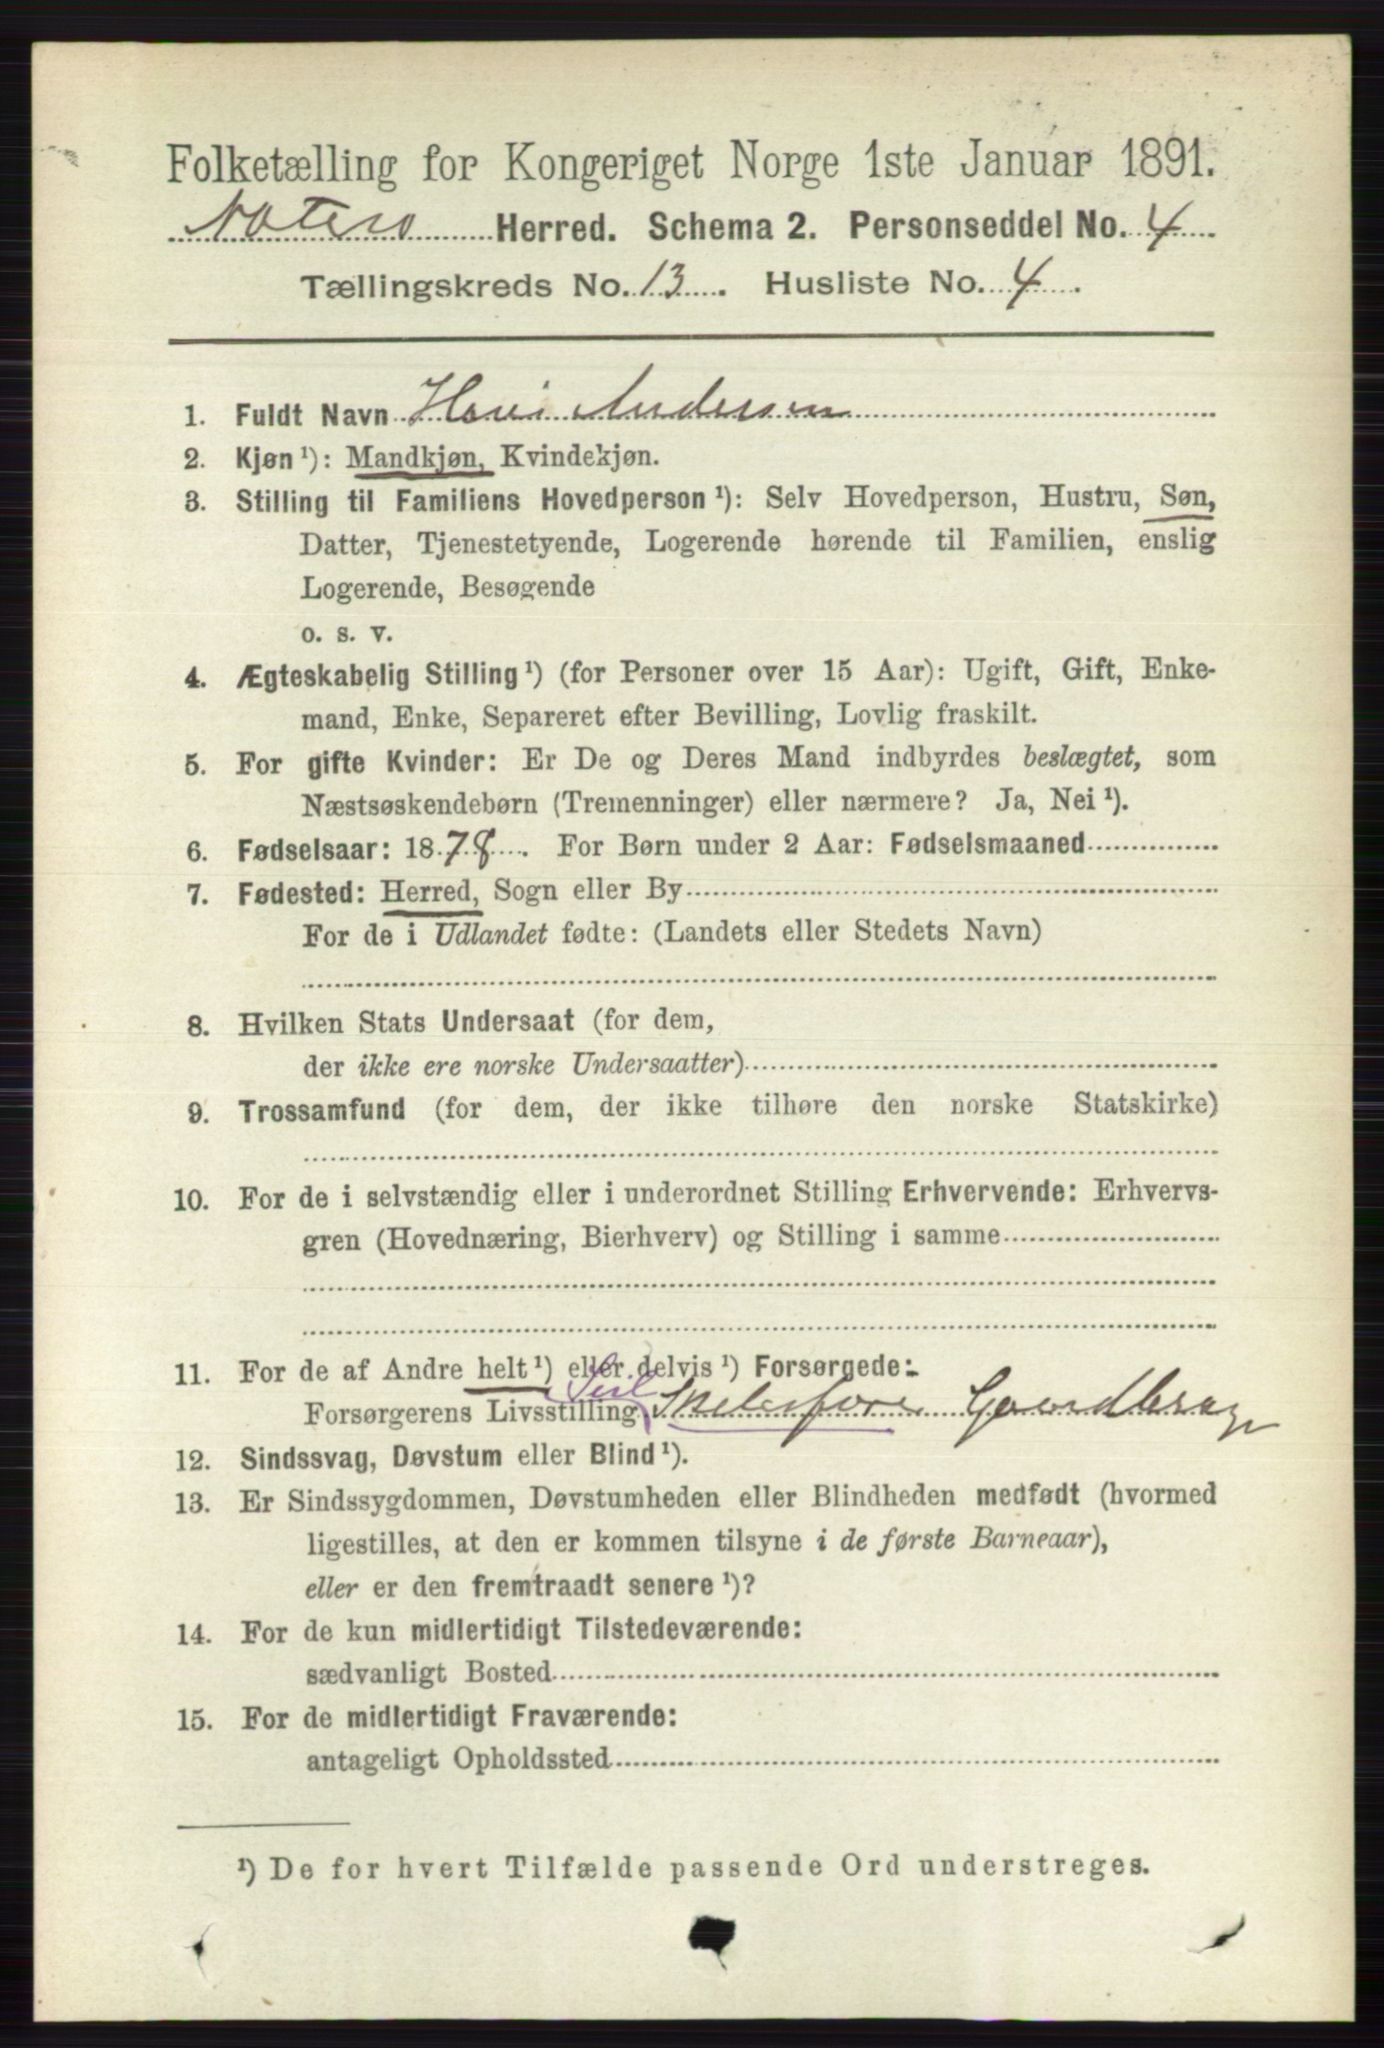 Folketælling for Kongeriget Norge 1ste Januar 1891.
Nøterø Herred. Schema 2. Personseddel No. 4
Tællingskreds No. 13. Husliste No. 4.
1. Fuldt Navn Hans Andersen
2. Kjøn ¹): Mandkjøn, Kvindekjøn.
3. Stilling til Familiens Hovedperson ¹): Selv Hovedperson, Hustru, Søn,
Datter, Tjenestetyende, Logerende hørende til Familien, enslig
Logerende, Besøgende
o. s. v.
4. Ægteskabelig Stilling ¹) (for Personer over 15 Aar): Ugift, Gift, Enke-
mand, Enke, Separeret efter Bevilling, Lovlig fraskilt.
5. For gifte Kvinder: Er De og Deres Mand indbyrdes beslægtet, som
Næstsøskendebørn (Tremenninger) eller nærmere? Ja, Nei ¹).
6. Fødselsaar: 1878. For Børn under 2 Aar: Fødselsmaaned
7. Fødested: Herred, Sogn eller By
For de i Udlandet fødte: (Landets eller Stedets Navn)
8. Hvilken Stats Undersaat (for dem,
der ikke ere norske Undersaatter)
9. Trossamfund (for dem, der ikke tilhøre den norske Statskirke)
10. For de i selvstændig eller i underordnet Stilling Erhvervende: Erhvervs-
gren (Hovednæring, Bierhverv) og Stilling i samme
11. For de af Andre helt ¹) eller delvis ¹) Forsørgede:
Forsørgerens Livsstilling Gaardbrug
12. Sindssvag, Døvstum eller Blind ¹).
13. Er Sindssygdommen, Døvstumheden eller Blindheden medfødt (hvormed
ligestilles, at den er kommen tilsyne i de første Barneaar),
eller er den fremtraadt senere ¹)?
14. For de kun midlertidigt Tilstedeværende:
sædvanligt Bosted
15. For de midlertidigt Fraværende:
antageligt Opholdssted
¹) De for hvert Tilfælde passende Ord understreges.